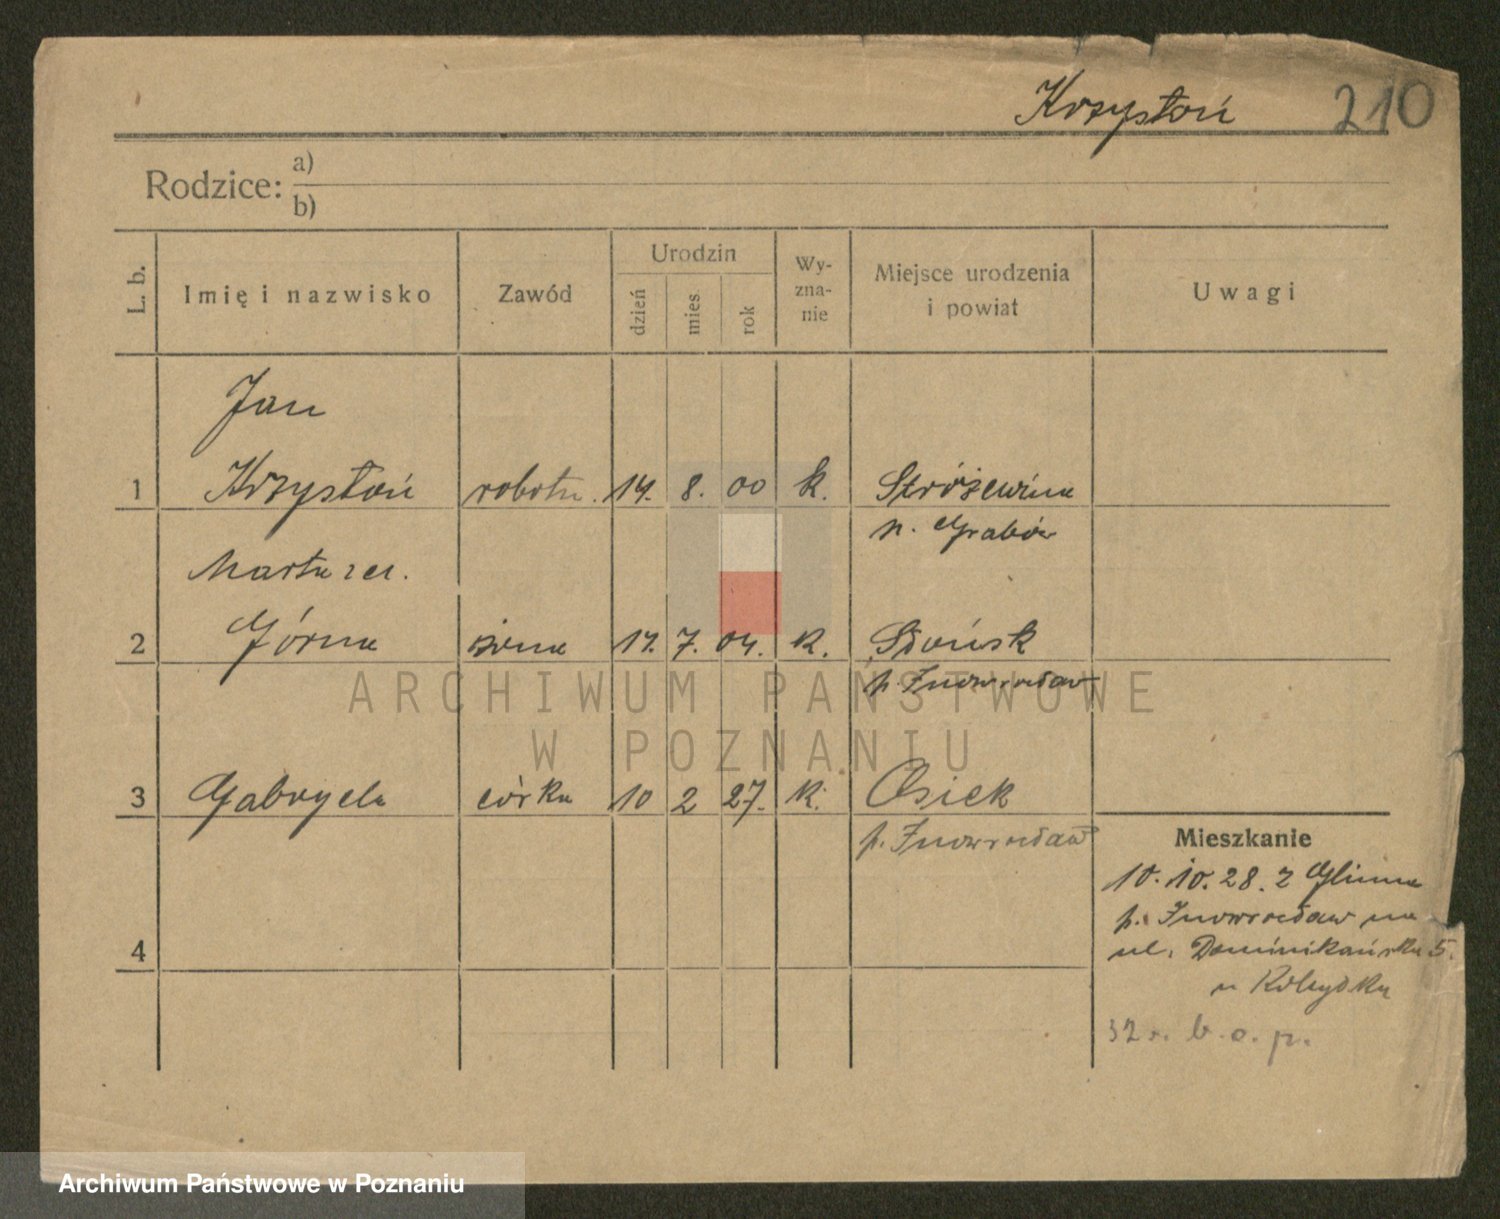 Krzystoń 210
Rodzice: a)
b)
L. b. Imię i nazwisko Zawód Urodzin dzień mies. rok Wy-zna-nie Miejsce urodzenia i powiat Uwagi
Jan
1 Krzystoń robotn. 14. 8. 00 k.
p. Grabów
Marta z d.
2 Górna żona 17. 7. 04. k. Słońsk
p. Inowrocław
ARCHIWUM PAŃSTWOWE
W POZNANIU
3 Gabryela córka 10 2 27. k. Osiek
p. Inowrocław
Mieszkanie
10. 10. 28. z Glinna
p. Inowrocław na
ul. Dominikańska 5.
u
4
32 r. b. o. p.
Archiwum Państwowe w Poznaniu